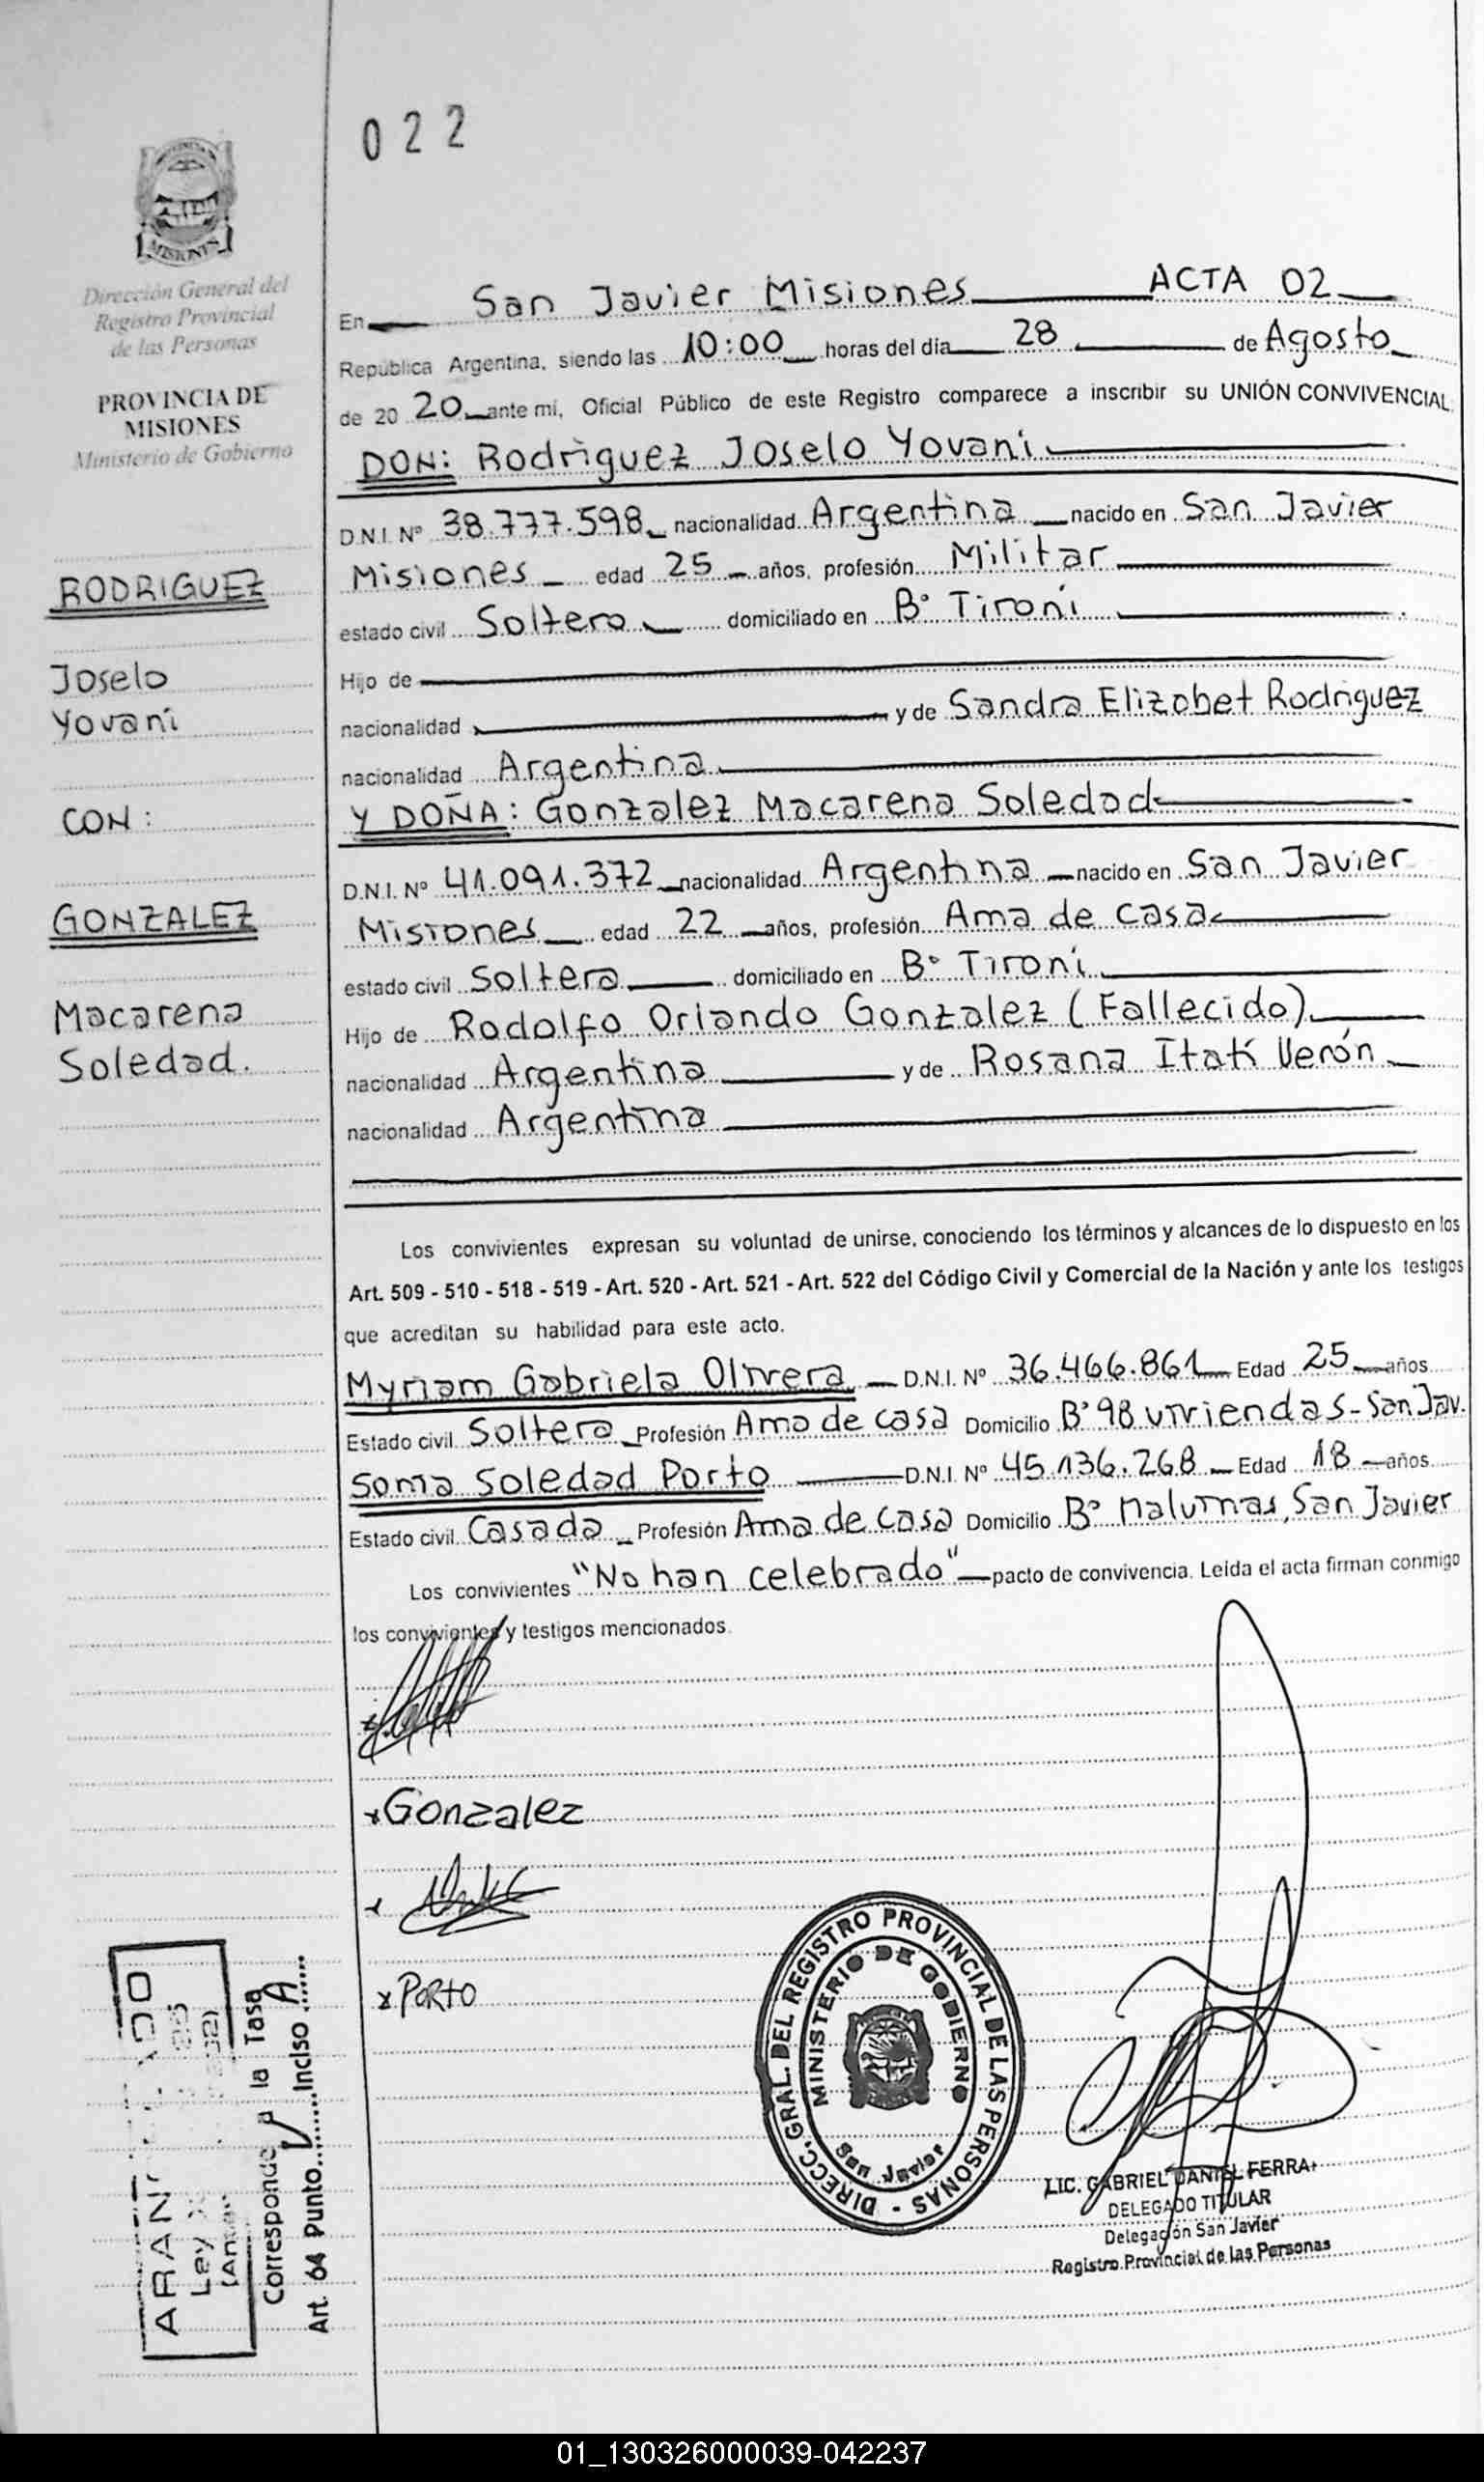 022
MISIONES
Dirección General del
Registro Provincial
de las Personas
PROVINCIA DE
MISIONES
Ministerio de Gobierno
RODRIGUEZ
Joselo
Yovani
CON:
GONZALEZ
Macarena
Soledad.
En San Javier Misiones ACTA 02
República Argentina, siendo las 10:00 horas del día 28 de Agosto
de 20 20 ante mí, Oficial Público de este Registro comparece a inscribir su UNIÓN CONVIVENCIAL
DON: Rodriguez Joselo Yovani
D.N.I. Nº 38.777.598 nacionalidad Argentina nacido en San Javier
Misiones edad 25 años, profesión Militar
estado civil Soltero domiciliado en Bº Tironi
Hijo de
nacionalidad y de Sandra Elizabet Rodriguez
nacionalidad Argentina
Y DOÑA: Gonzalez Macarena Soledad
D.N.I. Nº 41.091.372 nacionalidad Argentina nacido en San Javier
Misiones edad 22 años, profesión Ama de casa
estado civil Soltera domiciliado en Bº Tironi
Hijo de Rodolfo Orlando Gonzalez (Fallecido)
nacionalidad Argentina y de Rosana Itatí Verón
nacionalidad Argentina
Los convivientes expresan su voluntad de unirse, conociendo los términos y alcances de lo dispuesto en los
Art. 509 - 510 - 518 - 519 - Art. 520 - Art. 521 - Art. 522 del Código Civil y Comercial de la Nación y ante los testigos
que acreditan su habilidad para este acto.
Myriam Gabriela Olivera D.N.I. Nº 36.466.861 Edad 25 años
Estado civil Soltera Profesión Ama de casa Domicilio Bº 98 viviendas - San Jav.
Sonia Soledad Porto D.N.I. Nº 45.136.268 Edad 18 años
Estado civil Casada Profesión Ama de casa Domicilio Bº Malvinas, San Javier
Los convivientes "No han celebrado" pacto de convivencia. Leída el acta firman conmigo
los convivientes y testigos mencionados.
x Gonzalez
x PORTO
DIRECC. GRAL. DEL REGISTRO PROVINCIAL DE LAS PERSONAS
MINISTERIO DE GOBIERNO
San Javier
LIC. GABRIEL DANIEL FERRA
DELEGADO TITULAR
Delegación San Javier
Registro Provincial de las Personas
Ley
Corresponde a la Tasa
Art. 64 Punto V Inciso A
01_130326000039-042237